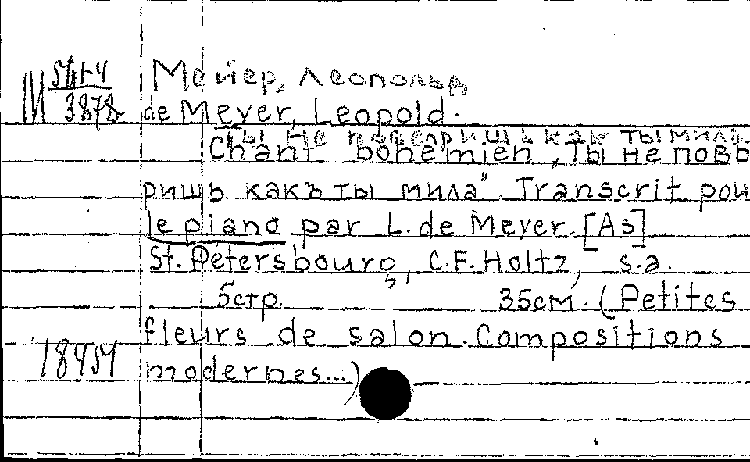 Мейер, Леопольд
de Meyer, Leopold.
Ты не поверишь как ты мила
Chant bohémien „Ты не повѣ
ришь какъ ты мила" Transcrit pour
le piano par L. de Meyer. [As]
St. Petersbourg, C.F. Holtz, s.a.
5стр. 35см. (Petites
fleurs de salon. Compositions
modernes...)